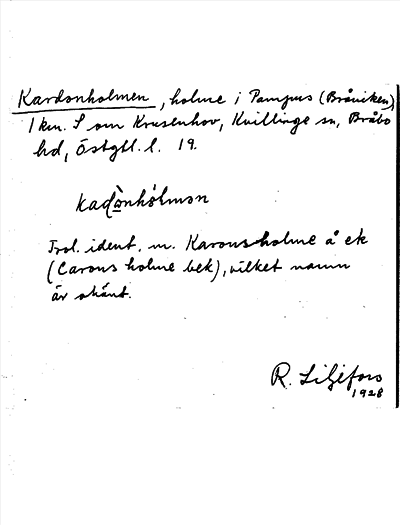 Kardonholmen, holme i Pampus (Bråviken),
1 km. S om Krusenhov, Kvillinge sn, Bråbo
hd, Östgtl. l. 19.
kadònhòlmən
Trol. ident. m. Karons holme å ek
(Carons holme bek), vilket namn
är okänt.
R. Liljefors
1928